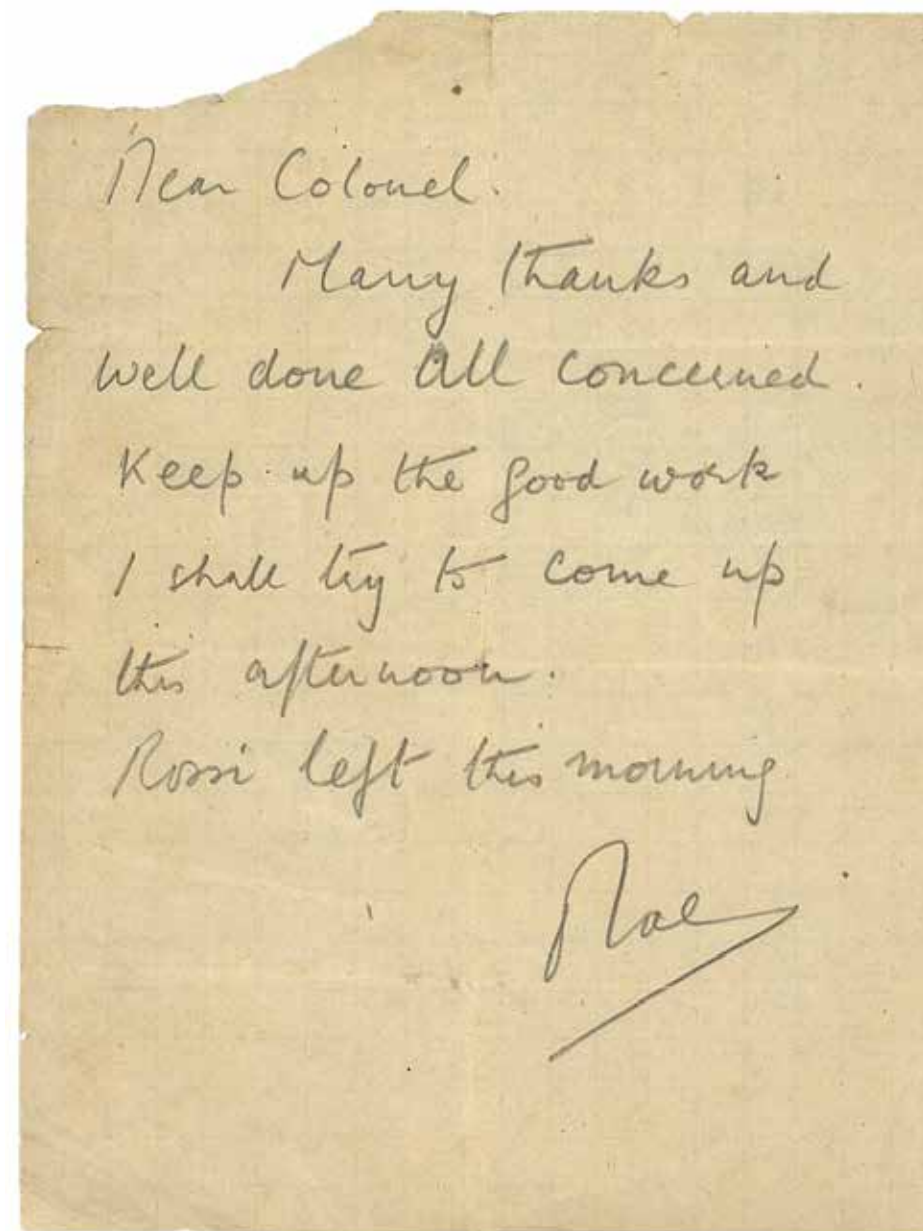 Dear Colonel.
Many thanks and
well done all concerned.
Keep up the good work
I shall try to come up
this afternoon.
Rossi left this morning